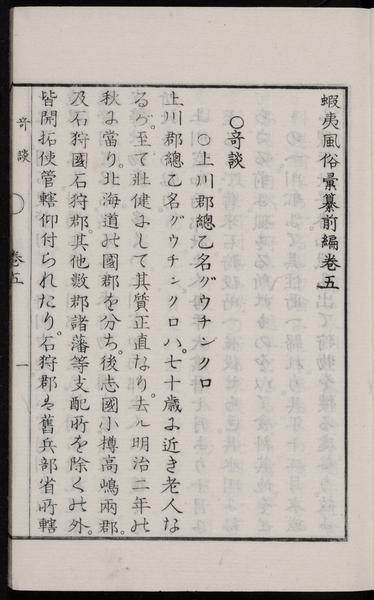 蝦夷風俗彙纂前編巻五
○竒談
○上川郡總乙名グウチンクロ
上川郡總乙名グウチンクロハ。七十歳に近き老人な
るが。至て壮健にして其質正直なり。去ル明治二年の
秋に當り。北海道の國郡を分ち。後志國小樽高嶋兩郡。
及石狩國石狩郡。其他数郡諸藩等支配所を除くの外。
皆開拓使管轄仰付られたり。石狩郡は舊兵部省所轄
竒談
巻五
一